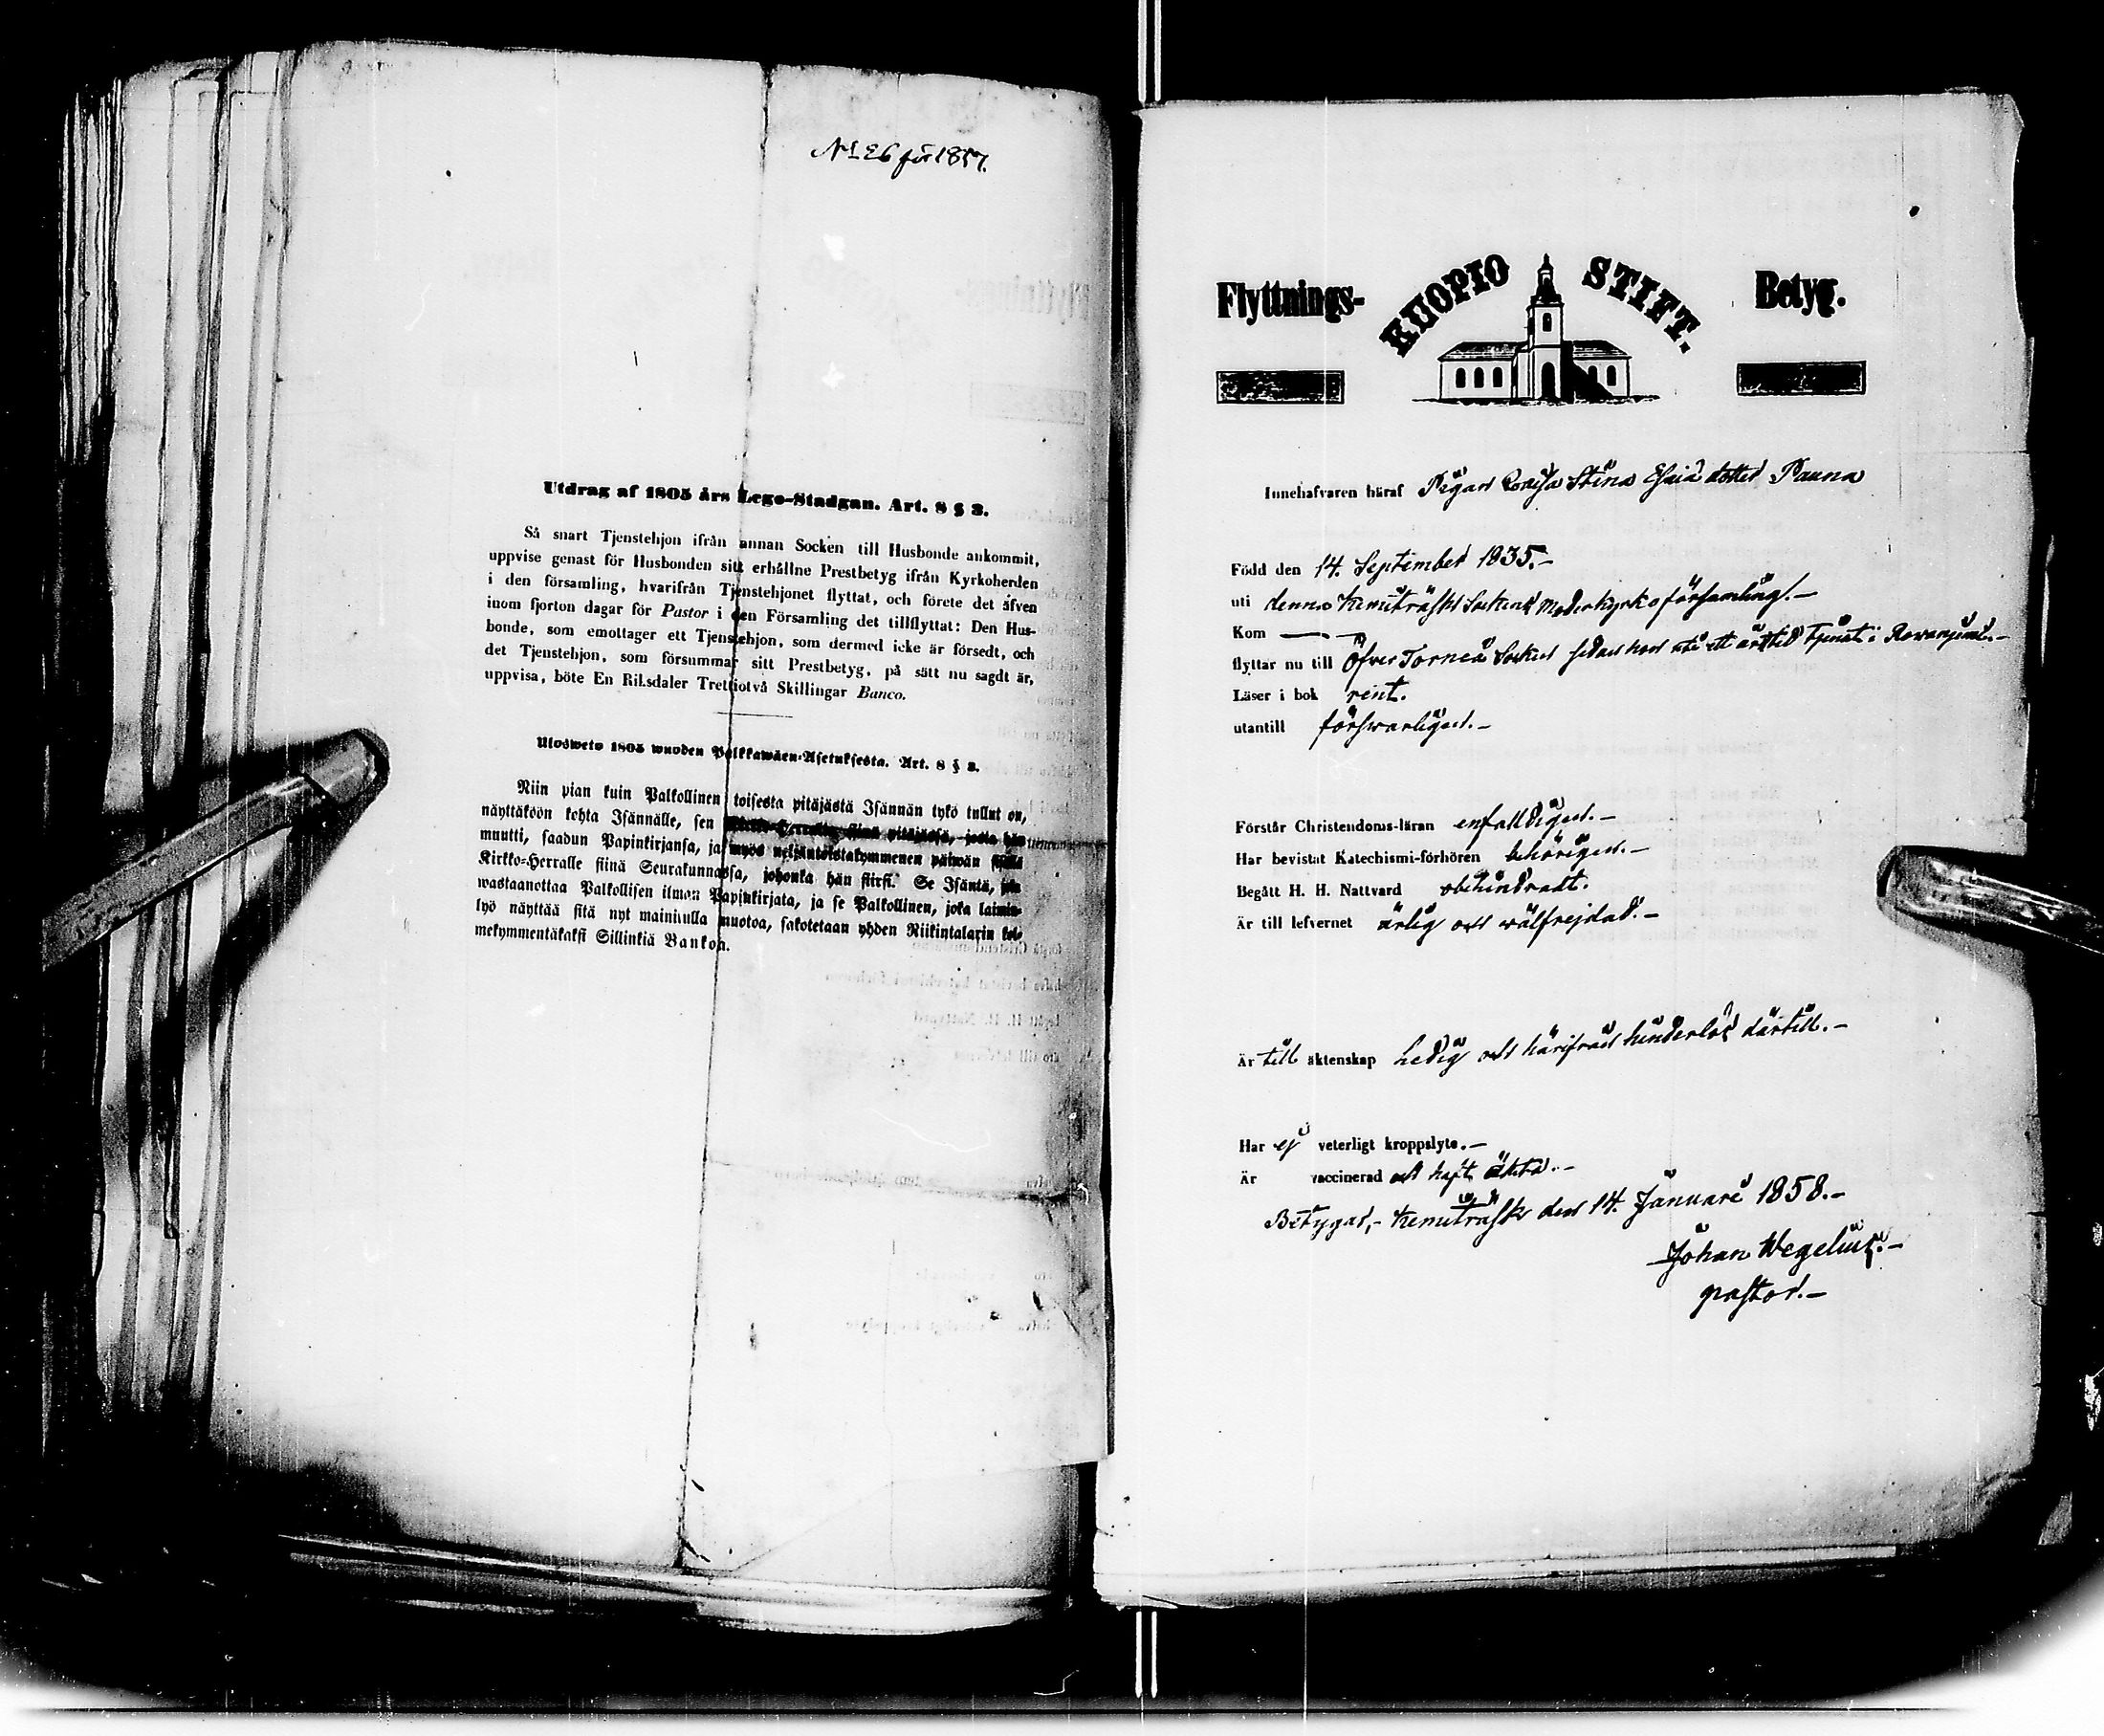 No 26 för 1857.
Utdrag af 1805 års Lego-Stadgan. Art. 8 § 3.
Så snart Tjenstehjon ifrån annan Socken till Husbonde ankommit,
uppvise genast för Husbonden sitt erhållne Prestbetyg ifrån Kyrkoherden
i den församling, hvarifrån Tjenstehjonet flyttat, och förete det äfven
inom fjorton dagar för Pastor i den Församling det tillflyttat: Den Hus-
bonde, som emottager ett Tjenstehjon, som dermed icke är försedt, och
det Tjenstehjon, som försummar sitt Prestbetyg, på sätt nu sagdt är,
uppvisa, böte En Riksdaler Trettiotvå Skillingar Banco.
Ulosweto 1805 wuoden Palkkawäen-Asetuksesta. Art. 8 § 3.
Niin pian kuin Palkollinen toisesta pitäjästä Isännän tykö tullut on,
näyttäköön kohta Isännälle, sen pitäjässä, josta hän
muutti, saadun Papinkirjansa, ja myös neljäntoistakymmenen päiwän
Kirkko-Herralle siinä Seurakunnassa, johonka hän siirsi. Se Isäntä,
wastaanottaa Palkollisen ilman Papinkirjata, ja se Palkollinen, joka laimin-
lyö näyttää sitä nyt mainitulla muotoa, sakotetaan yhden Riikintalarin kol-
mekymmentäkaksi Sillinkiä Bankoa.
Flyttnings- KUOPIO STIFT. Betyg.
Innehafvaren häraf Pigan Lovisa Stina Esaiædotter Pauna
Född den 14. September 1835.-
uti denna Kemiträsk Sockens Moderkyrkoförsamling.-
Kom — —
flyttar nu till Öfver Torneå Socken sedan hon uti ett årstid tjenat i Rovaniemi.-
Läser i bok rent.
utantill försvarligen.-
Förstår Christendoms-läran enfalldigen.-
Har bevistat Katechismi-förhören behörigen.-
Begått H. H. Nattvard obehindradt.
Är till lefvernet ärlig och wälfrejdad.-
Är till äktenskap ledig och härifrån hinderlös därtill.-
Har ej veterligt kroppslyte.-
Är vaccinerad och haft äkta.-
Betygar,- Kemiträsk den 14. Januari 1858.-
Johan Wegelius.-
pastor.-